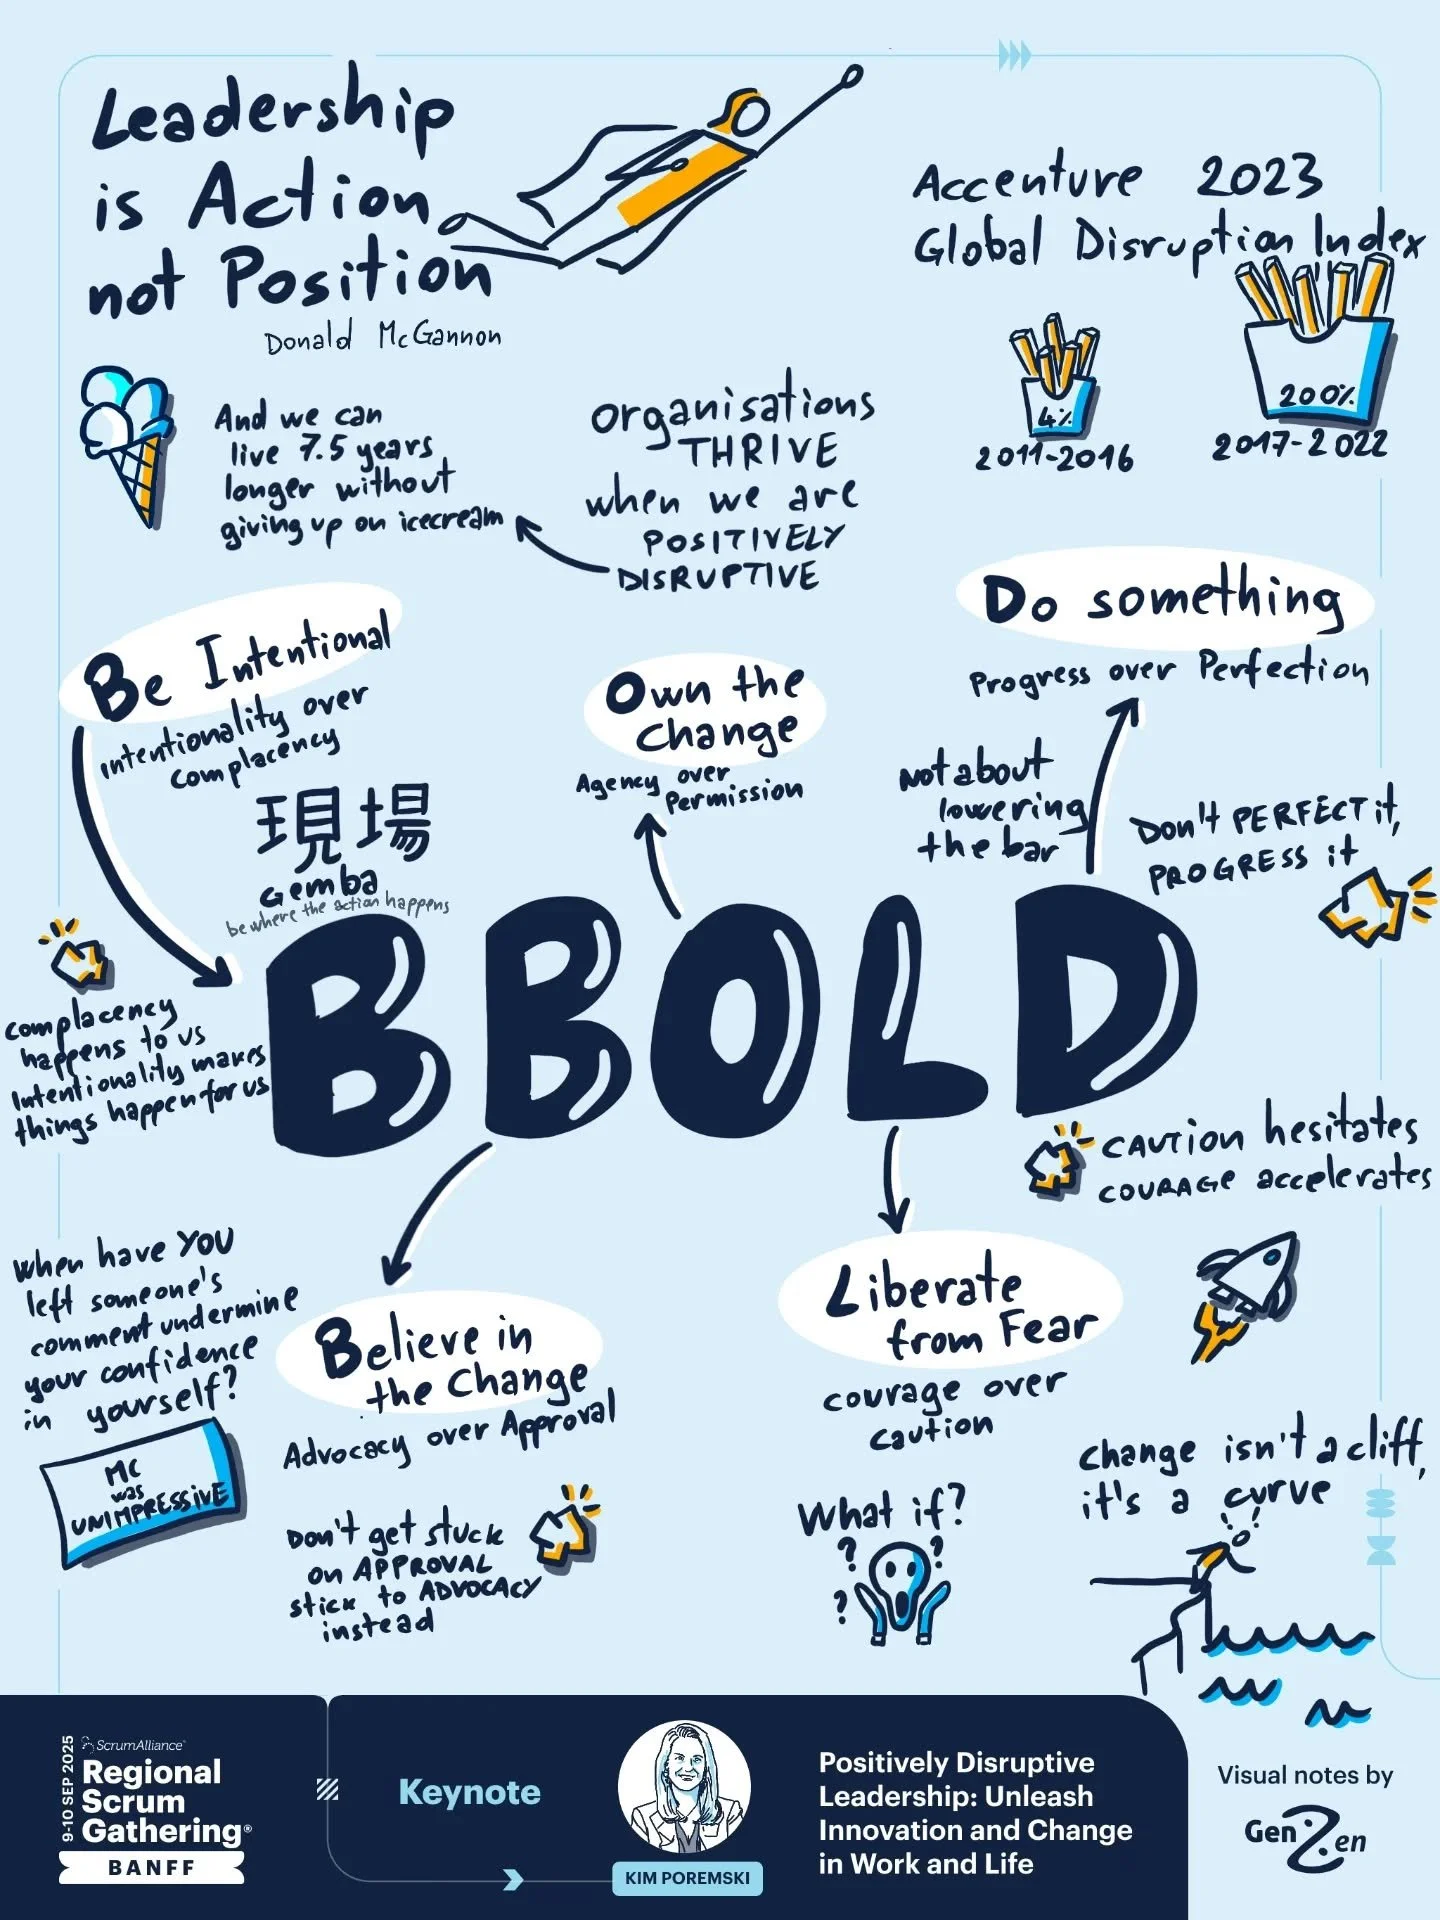 Leadership
is Action
not Position
Donald McGannon
Accenture 2023
Global Disruption Index
4%
2011-2016
200%
2017-2022
And we can
live 7.5 years
longer without
giving up on icecream
organisations
THRIVE
when we are
POSITIVELY
DISRUPTIVE
Be Intentional
intentionality over
complacency
現場
Gemba
be where the action happens
Own the
change
Agency over
Permission
Do something
Progress over Perfection
Not about
lowering
the bar
Don't PERFECT it,
PROGRESS it
complacency
happens to us
Intentionality makes
things happen for us
BBOLD
CAUTION hesitates
COURAGE accelerates
When have YOU
left someone's
comment undermine
your confidence
in yourself?
MC
was
UNIMPRESSIVE
Believe in
the Change
Advocacy over Approval
Don't get stuck
on APPROVAL
stick to ADVOCACY
instead
Liberate
from Fear
courage over
caution
What if?
? ?
?
change isn't a cliff,
it's a curve
! !
9-10 SEP 2025
ScrumAlliance
Regional
Scrum
Gathering®
BANFF
Keynote
KIM POREMSKI
Positively Disruptive
Leadership: Unleash
Innovation and Change
in Work and Life
Visual notes by
Gen Zen